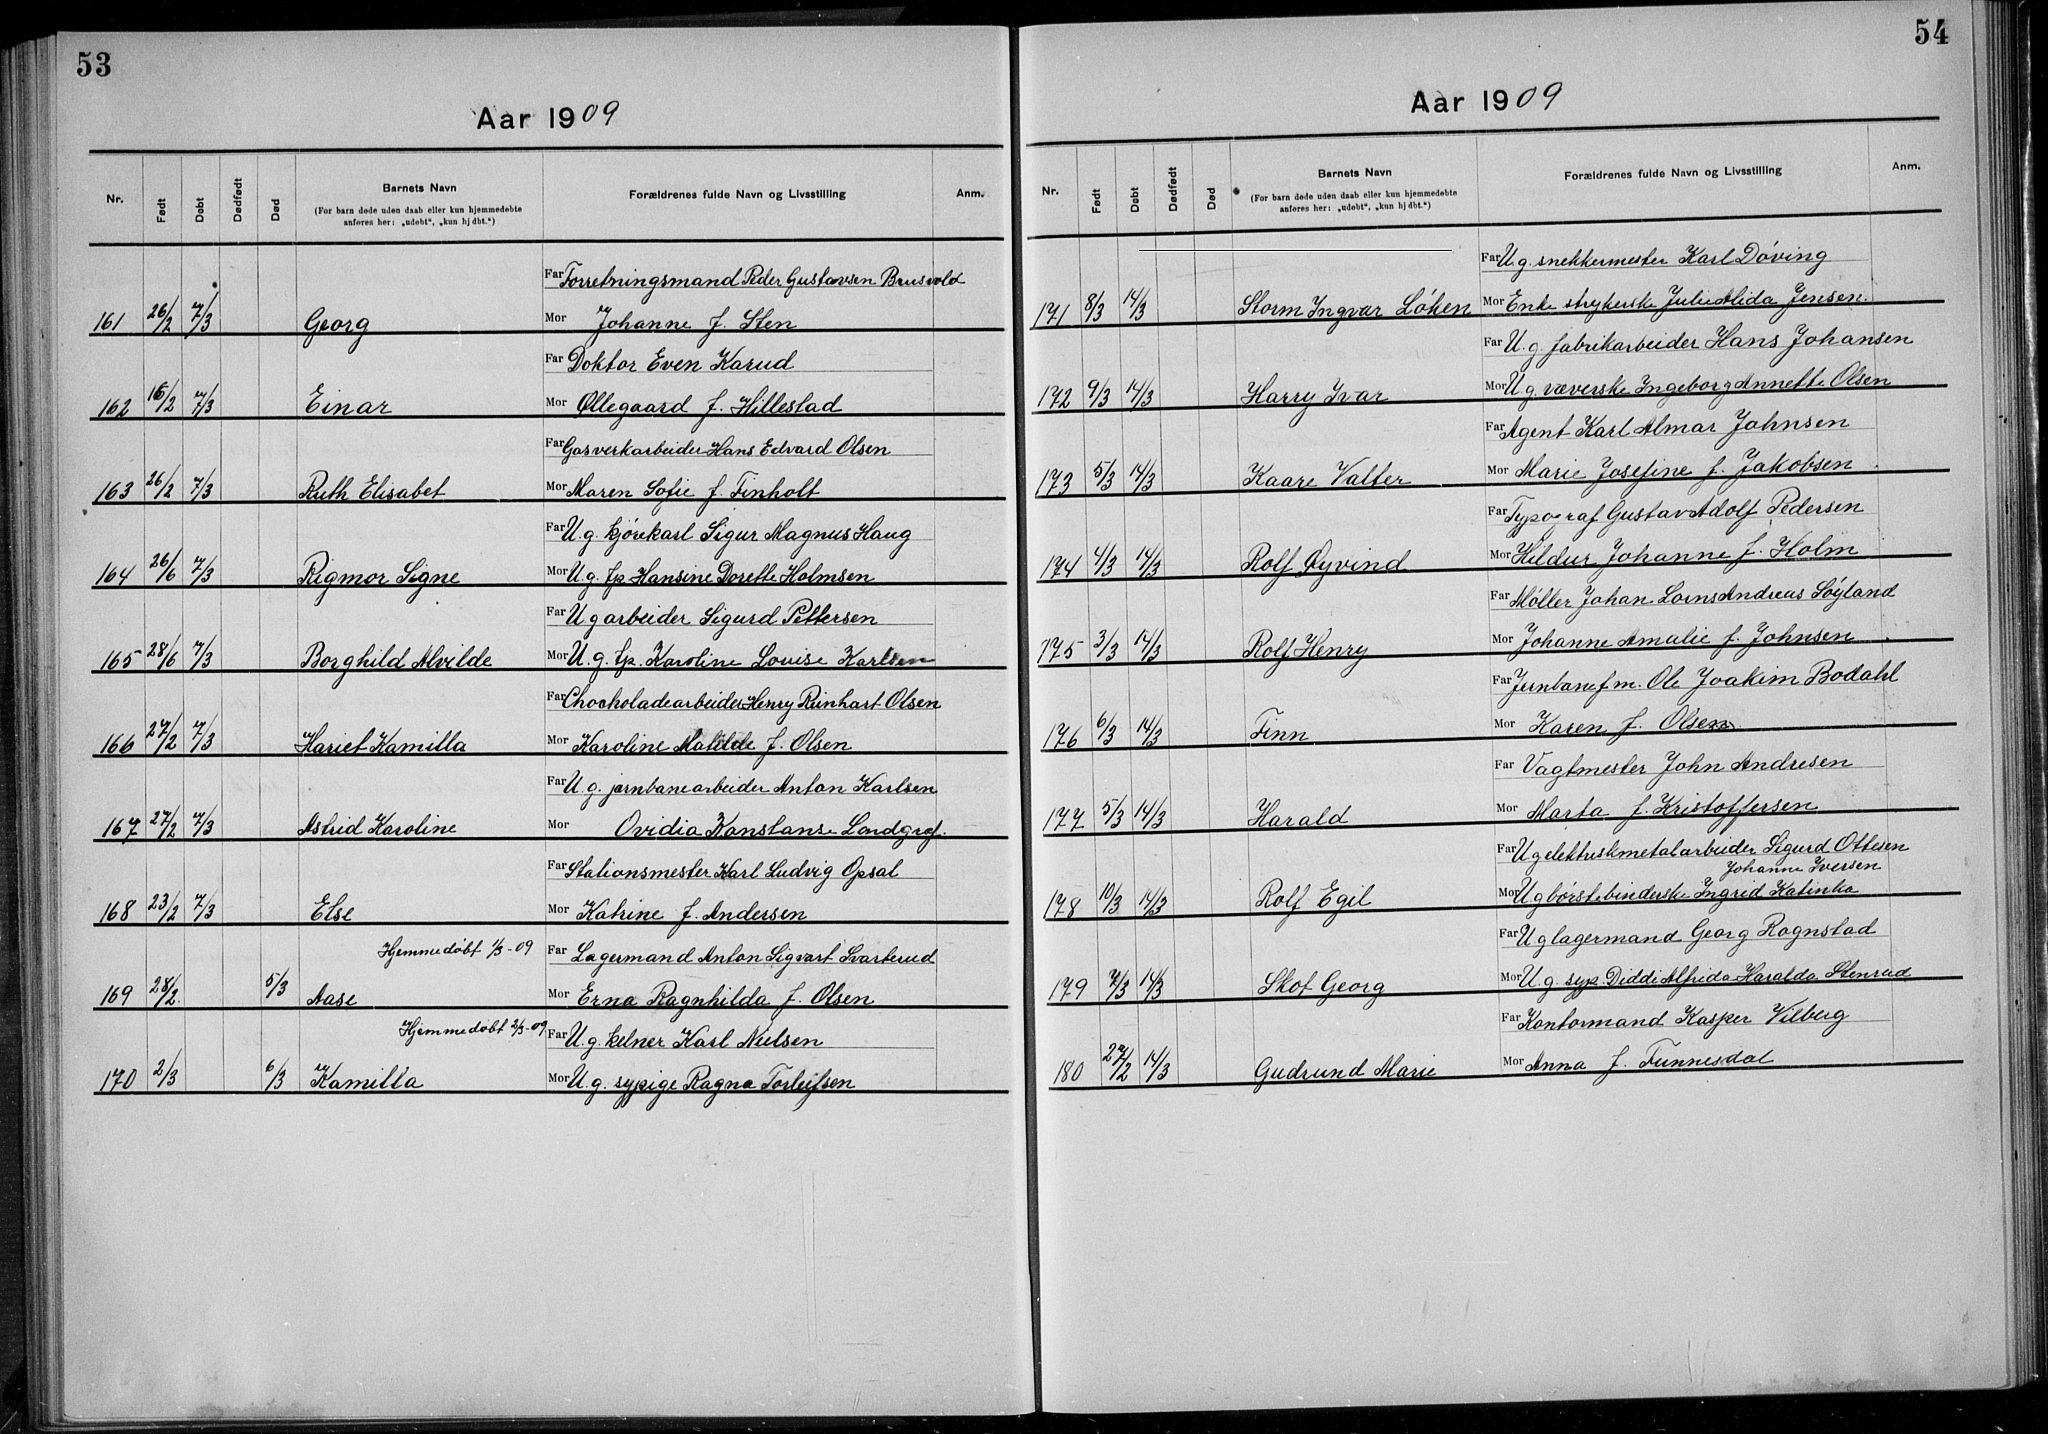 53
Aar 1909
Nr. Født Døbt Dødfødt Død Barnets Navn Forældrenes fulde Navn og Livsstilling Anm.
(For barn døde uden daab eller kun hjemmedøbte
anføres her: „udøbt“, „kun hj dbt.“)
Far Forretningsmand Peder Gustavsen Brusvold
161 26/2 7/3 Georg Mor Johanne f. Sten
Far Doktor Even Karud
162 16/2 7/3 Einar Mor Øllegaard f. Hillestad
Far Gasverkarbeider Hans Edvard Olsen
163 26/2 7/3 Ruth Elisabet Mor Maren Sofie f. Finholt
Far U.g. kjørekarl Sigur Magnus Haug
164 26/6 7/3 Rigmor Signe Mor U.g. tp. Hansine Dorette Holmsen
Far U g arbeider Sigurd Pettersen
165 28/6 7/3 Borghild Alvilde Mor U.g. tp. Karoline Louise Karlsen
Far Chockoladearbeider Henry Reinhart Olsen
166 27/2 7/3 Hariet Kamilla Mor Karoline Matilde f. Olsen
Far U.g. jernbanearbeider Anton Karlsen
167 27/2 7/3 Astrid Karoline Mor Ovidia Konstanse Londgraf.
Far Stationsmester Karl Ludvig Opsal
168 23/2 7/3 Else Mor Katrine f. Andersen
Hjemmedøbt 1/3-09 Far Lagermand Anton Sigvart Svarterud
169 28/2 5/3 Aase Mor Erna Ragnhilda f. Olsen
Hjemmedøbt 2/3-09 Far U.g. kelner Karl Nielsen
170 2/3 6/3 Kamilla Mor U.g. sypige Ragna Torleifsen
54
Aar 1909
Nr. Født Døbt Dødfødt Død Barnets Navn Forældrenes fulde Navn og Livsstilling Anm.
(For barn døde uden daab eller kun hjemmedøbte
anføres her: „udøbt“, „kun hj dbt.“)
Far U.g. snekkermester Karl Døving
171 8/3 14/3 Storm Ingvar Løken Mor Enke strykerske Julie Alida Jensen.
Far U.g. fabrikarbeider Hans Johansen
172 9/3 14/3 Harry Ivar Mor U.g. væverske Ingeborg Annette Olsen
Far Agent Karl Almar Johnsen
173 5/3 14/3 Kaare Valter Mor Marie Josefine f. Jakobsen
Far Typograf Gustav Adolf Pedersen
174 4/3 14/3 Rolf Øyvind Mor Hildur Johanne f. Holm
Far Møller Johan Lorns Andreas Søyland
175 3/3 14/3 Rolf Henry Mor Johanne Amalie f. Johnsen
Far Jernbanefm. Ole Joakim Bodahl
176 6/3 14/3 Finn Mor Karen f. Olsen
Far Vagtmester John Andresen
177 5/3 14/3 Harald Mor Marta f. Kristoffersen
Far U g elektriskmetalarbeider Sigurd Ottesen
Johanne Iversen
178 10/3 14/3 Rolf Egil Mor U g børstebinderske Ingrid Katinka
Far U g lagermand Georg Rognstad
179 7/3 14/3 Skot Georg Mor U.g. syp. Diddi Alfrida Haralda Stenrud
Far Kontormand Kasper Vilberg
180 27/2 14/3 Gudrund Marie Mor Anna f. Funnesdal